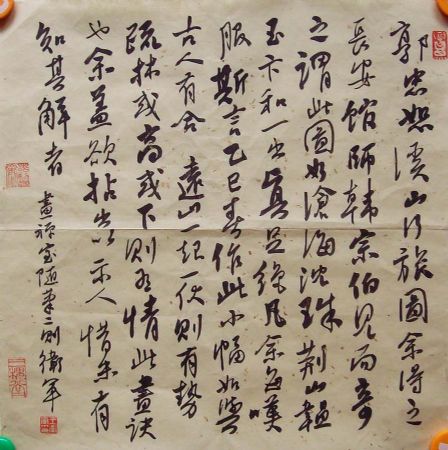 郭忠恕溪山行旅图余得之
长安馆师韩宗伯见而奇
之谓此图如沧海沈珠荆山韫
玉卞和一出真足绝凡余每叹
服斯言乙巳春作此小幅如与
古人有合 远山一起一伏则有势
疏林或高或下则有情此画诀
也余盖欲拈出以示人惜未有
知其解者
画禅室随笔二则卫军